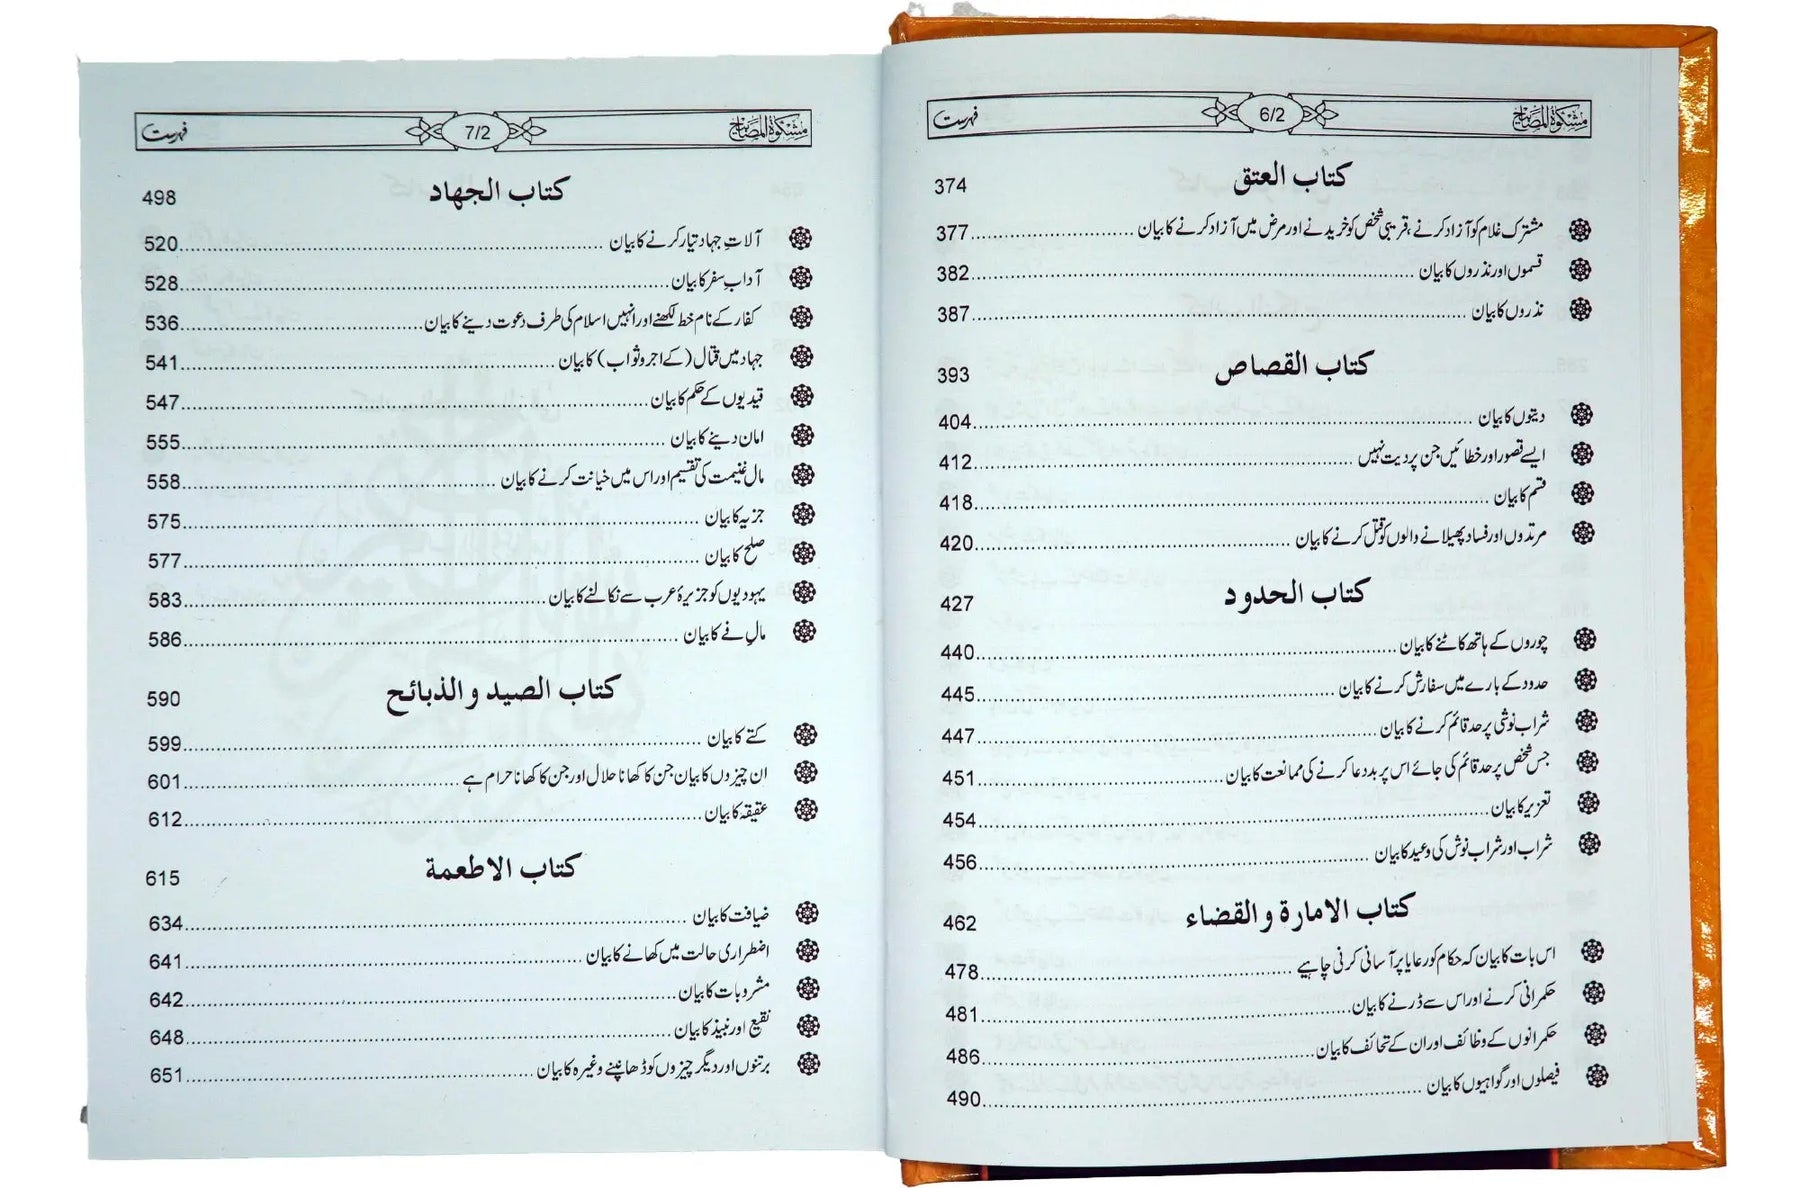 مشکوٰۃ المصابیح 6/2 فہرست
کتاب العتق 374
مشترک غلام کو آزاد کرنے، قریبی شخص کو خریدنے اور مرض میں آزاد کرنے کا بیان 377
قسموں اور نذروں کا بیان 382
نذروں کا بیان 387
کتاب القصاص 393
دیتوں کا بیان 404
ایسے قصور اور خطائیں جن پر دیت نہیں 412
قسم کا بیان 418
مرتدوں اور فساد پھیلانے والوں کو قتل کرنے کا بیان 420
کتاب الحدود 427
چوروں کے ہاتھ کاٹنے کا بیان 440
حدود کے بارے میں سفارش کرنے کا بیان 445
شراب نوشی پر حد قائم کرنے کا بیان 447
جس شخص پر حد قائم کی جائے اس پر بددعا کرنے کی ممانعت کا بیان 451
تعزیر کا بیان 454
شراب اور شراب نوش کی وعید کا بیان 456
کتاب الامارة والقضاء 462
اس بات کا بیان کہ حکام کو رعایا پر آسانی کرنی چاہیے 478
حکمرانی کرنے اور اس سے ڈرنے کا بیان 481
حکمرانوں کے وظائف اور ان کے تحائف کا بیان 486
فیصلوں اور گواہیوں کا بیان 490
مشکوٰۃ المصابیح 7/2 فہرست
کتاب الجهاد 498
آلاتِ جہاد تیار کرنے کا بیان 520
آدابِ سفر کا بیان 528
کفار کے نام خط لکھنے اور انہیں اسلام کی طرف دعوت دینے کا بیان 536
جہاد میں قتال (کے اجر و ثواب) کا بیان 541
قیدیوں کے حکم کا بیان 547
امان دینے کا بیان 555
مال غنیمت کی تقسیم اور اس میں خیانت کرنے کا بیان 558
جزیہ کا بیان 575
صلح کا بیان 577
یہودیوں کو جزیرۂ عرب سے نکالنے کا بیان 583
مالِ فے کا بیان 586
کتاب الصيد والذبائح 590
کتے کا بیان 599
ان چیزوں کا بیان جن کا کھانا حلال اور جن کا کھانا حرام ہے 601
عقیقہ کا بیان 612
کتاب الاطعمة 615
ضیافت کا بیان 634
اضطراری حالت میں کھانے کا بیان 641
مشروبات کا بیان 642
نقیع اور نبیذ کا بیان 648
برتنوں اور دیگر چیزوں کو ڈھانپنے وغیرہ کا بیان 651